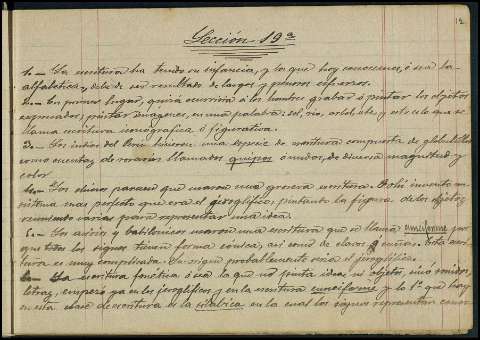 12
Sección 19ª
1.- La escritura ha tenido su infancia, y la que hoy conocemos, ó sea la
alfabética, debe de ser resultado de largos y penosos esfuerzos.
2.- En primer lugar, quizá ocurriría á los hombres grabar ó pintar los objetos
expresados, pintar imágenes, en una palabra, sol, rio, arbol, etc, y esto es lo que se
llama escritura iconografica ó figurativa.
3.- Los indios del Perú tuvieron una especie de escritura compuesta de globulillos
como cuentas de rosarios llamados quipos ó nudos, de diversa magnitud y
color
4.- Los chinos parece que usaron una grosera escritura. Fohi inventó un
sistema mas perfecto que era el geroglífico, pintando la figura de los objetos,
reuniendo varias para representar una idea.
5.- Los asirios y babilónicos usaron una escritura que se llama cuneiforme por
que todos los signos tienen forma cónica, así como de clavos ó cuñas. Esta escri
tura es muy complicada. Su origen probablemente sería el jeroglífico.
6.- La escritura fonética ó sea la que no pinta ideas ni objetos, sinó sonidos,
letras, empezó ya en los jeroglíficos y en la escritura cuneiforme y lo 1º que hay
en esta clase de escritura es la silabica en la cual los signos representan conso